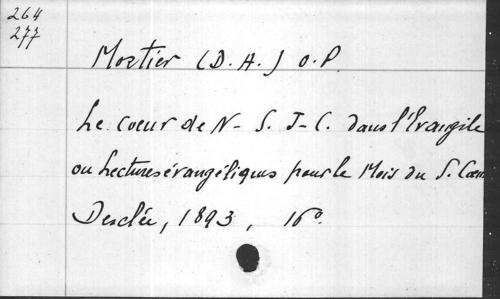 264
277
Mortier (D. A.) O. P.
Le Coeur de N- S. J-C. dans l'Evangile
ou Lectures évangéliques pour le Mois du S. Coeur
Desclée, 1893, 16°.